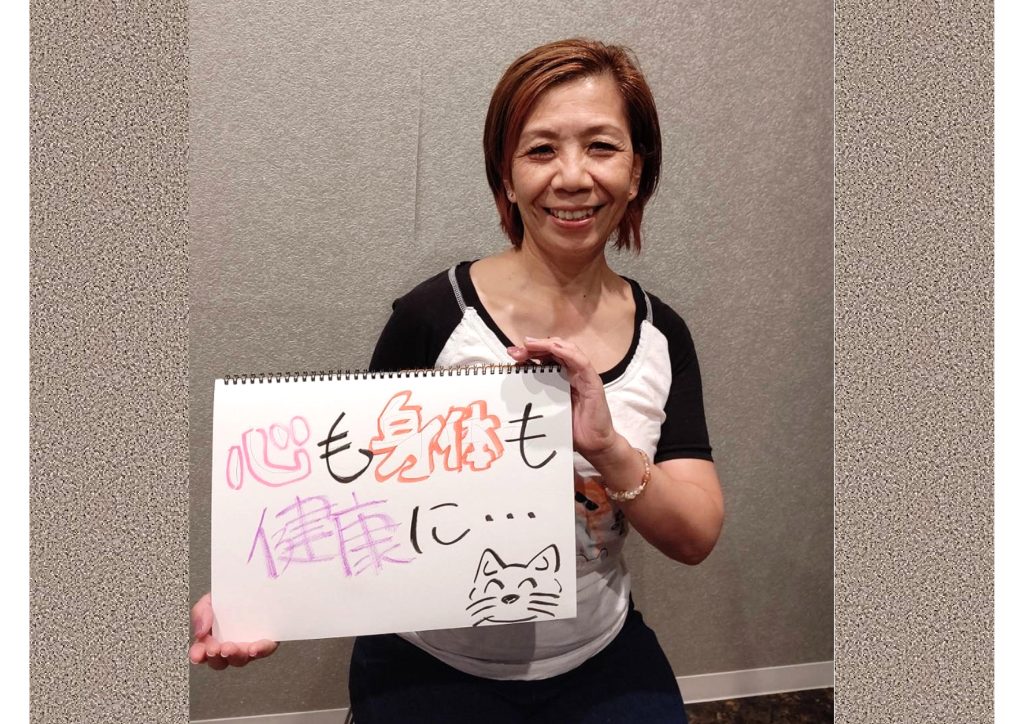 心も身体も
健康に・・・